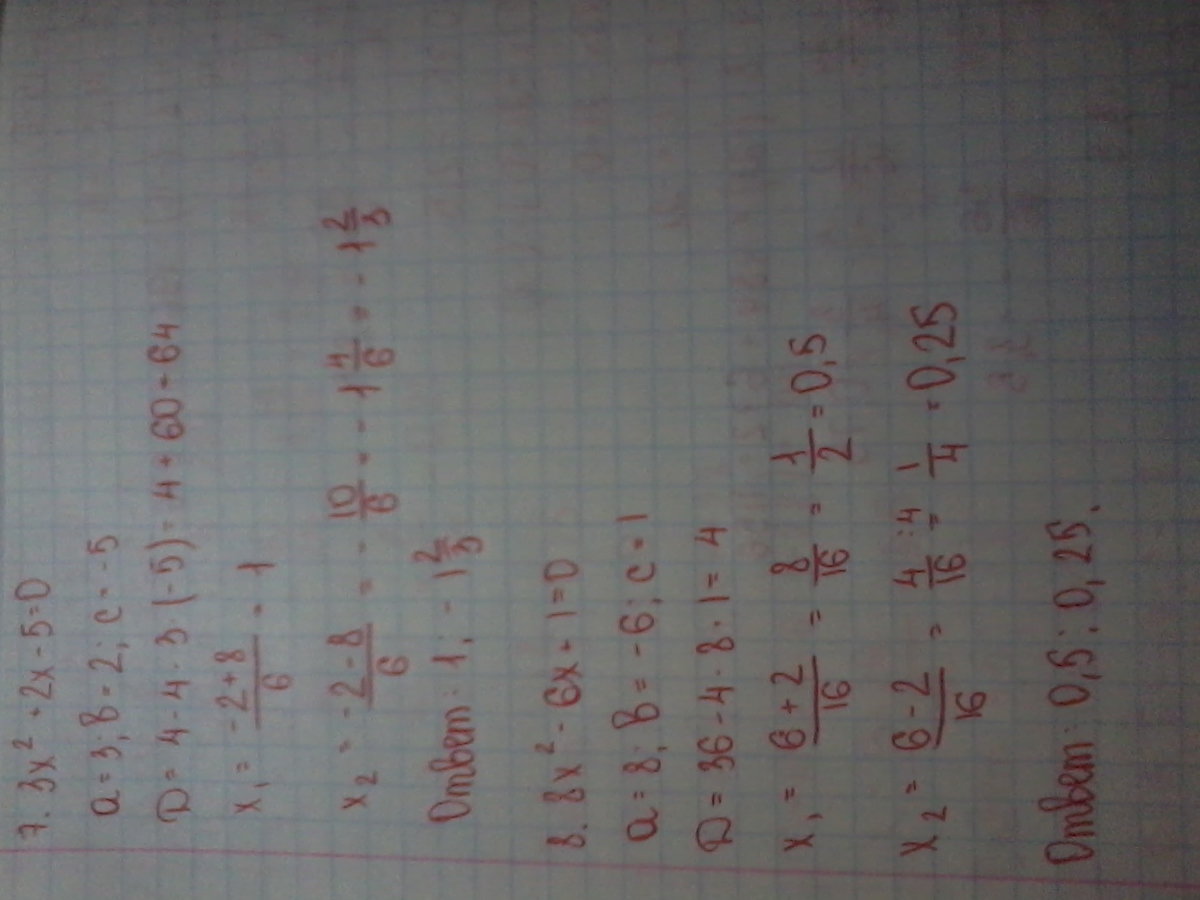 7. 3x² + 2x - 5 = 0
a = 3; b = 2; c = -5
D = 4 - 4 · 3 · (-5) = 4 + 60 = 64
x₁ = (-2+8)/6 = 1
x₂ = (-2-8)/6 = -10/6 = -1 4/6 = -1 2/3
Ответ: 1; -1 2/3
8. 8x² - 6x + 1 = 0
a = 8; b = -6; c = 1
D = 36 - 4 · 8 · 1 = 4
x₁ = (6+2)/16 = 8/16 = 1/2 = 0,5
x₂ = (6-2)/16 = 4/16 :4 = 1/4 = 0,25
Ответ: 0,5; 0,25.